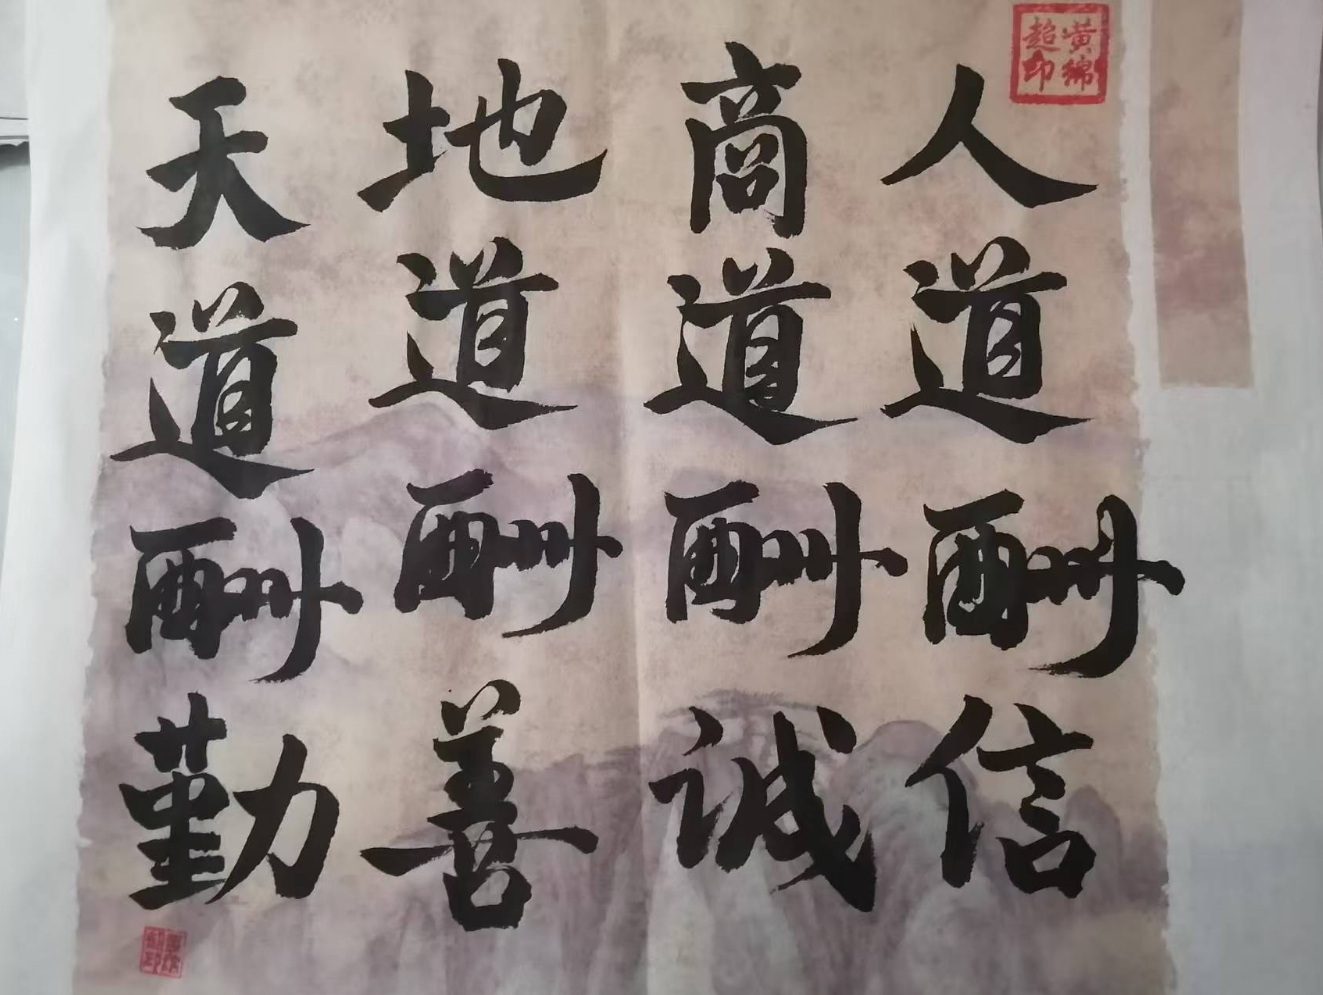 黄绵
超印
人道酬信
商道酬誠
地道酬善
天道酬勤